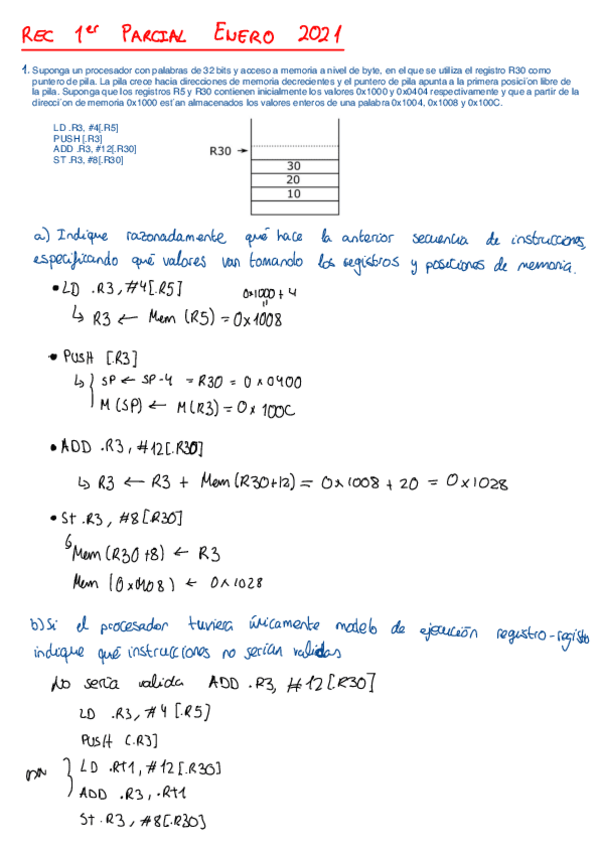 REC 1er PARCIAL ENERO 2021
1. Suponga un procesador con palabras de 32 bits y acceso a memoria a nivel de byte, en el que se utiliza el registro R30 como
puntero de pila. La pila crece hacia direcciones de memoria decrecientes y el puntero de pila apunta a la primera posici´on libre de
la pila. Suponga que los registros R5 y R30 contienen inicialmente los valores 0x1000 y 0x0404 respectivamente y que a partir de la
direcci´on de memoria 0x1000 est´an almacenados los valores enteros de una palabra 0x1004, 0x1008 y 0x100C.
LD .R3, #4[.R5]
PUSH [.R3]
ADD .R3, #12[.R30]
ST .R3, #8[.R30]
R30
30
20
10
a) Indique razonadamente qué hace la anterior secuencia de instrucciones,
especificando qué valores van tomando los registros y posiciones de memoria.
• LD .R3, #4[.R5] 0x1000 + 4
↳ R3 ← Mem (R5) = 0x1008
• PUSH [.R3]
↳ SP ← SP-4 = R30 = 0x0400
M(SP) ← M(R3) = 0x100C
• ADD .R3, #12[.R30]
↳ R3 ← R3 + Mem(R30+12) = 0x1008 + 20 = 0x1028
• St .R3, #8[.R30]
↳ Mem(R30+8) ← R3
Mem (0x0408) ← 0x1028
b) Si el procesador tuviera únicamente modelo de ejecución registro-registro
indique qué instrucciones no serían validas
No sería valida ADD .R3, #12[.R30]
LD .R3, #4[.R5]
PUSH [.R3]
LD .Rt1, #12[.R30]
ADD .R3, .Rt1
St .R3, #8[.R30]